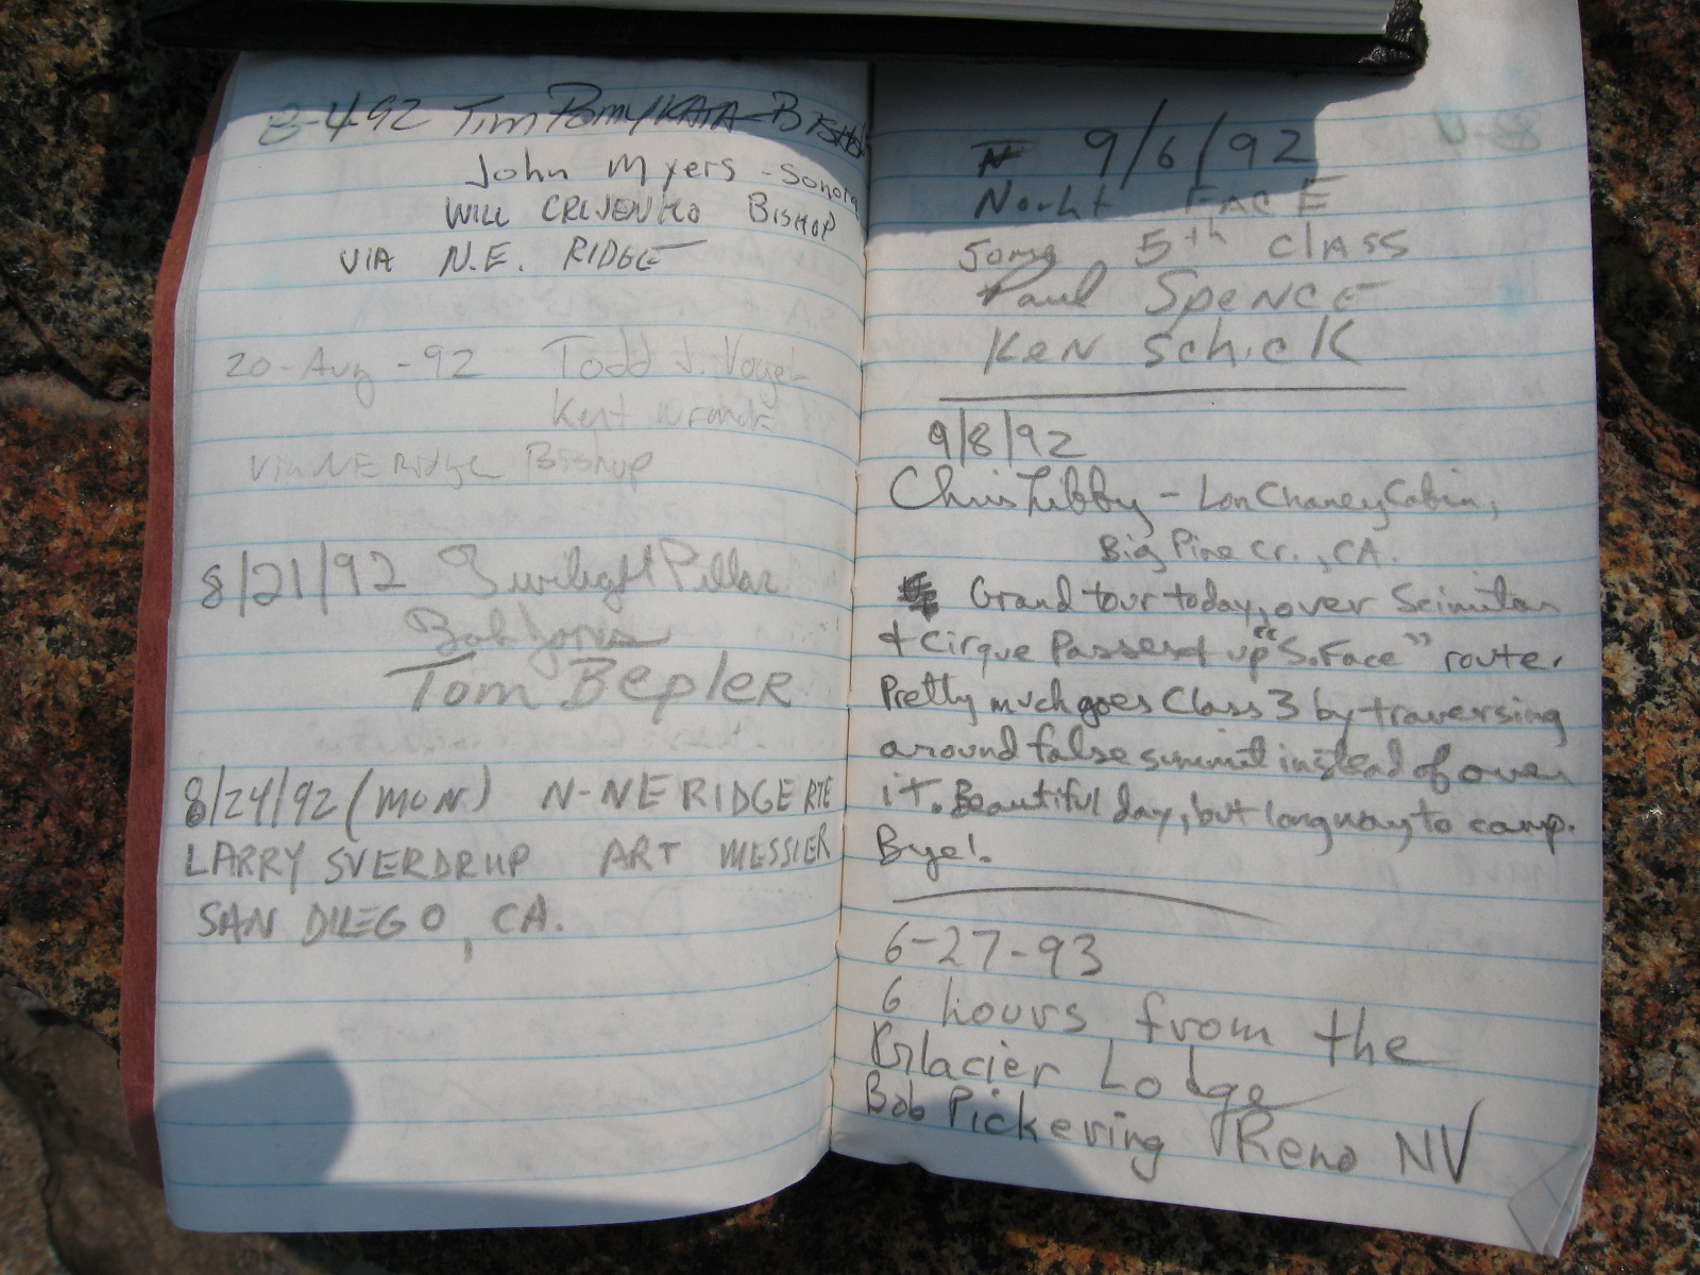 8-4-92 Tim Pomykata-Bishop
John Myers - Sonora
WILL CRLJENKO BISHOP
VIA N.E. RIDGE
20-Aug-92 Todd J. Vogel
Kent
Via NE Ridge Bishop
8/21/92 Twilight Pillar
Bob Jones
Tom Bepler
8/24/92 (MON.) N-NE RIDGE RTE
LARRY SVERDRUP ART MESSIER
SAN DIEGO, CA.
9/6/92
Norht FACE
Some 5th CLASS
Paul SPENCE
KEN SCHICK
9/8/92
Chris Libby - Lon Chaney Cabin,
Big Pine Cr., CA.
Grand tour today, over Scimitar
& Cirque Passes & up "S. Face" route.
Pretty much goes Class 3 by traversing
around false summit instead of over
it. Beautiful day, but long way to camp.
Bye!.
6-27-93
6 hours from the
Glacier Lodge
Bob Pickering Reno NV